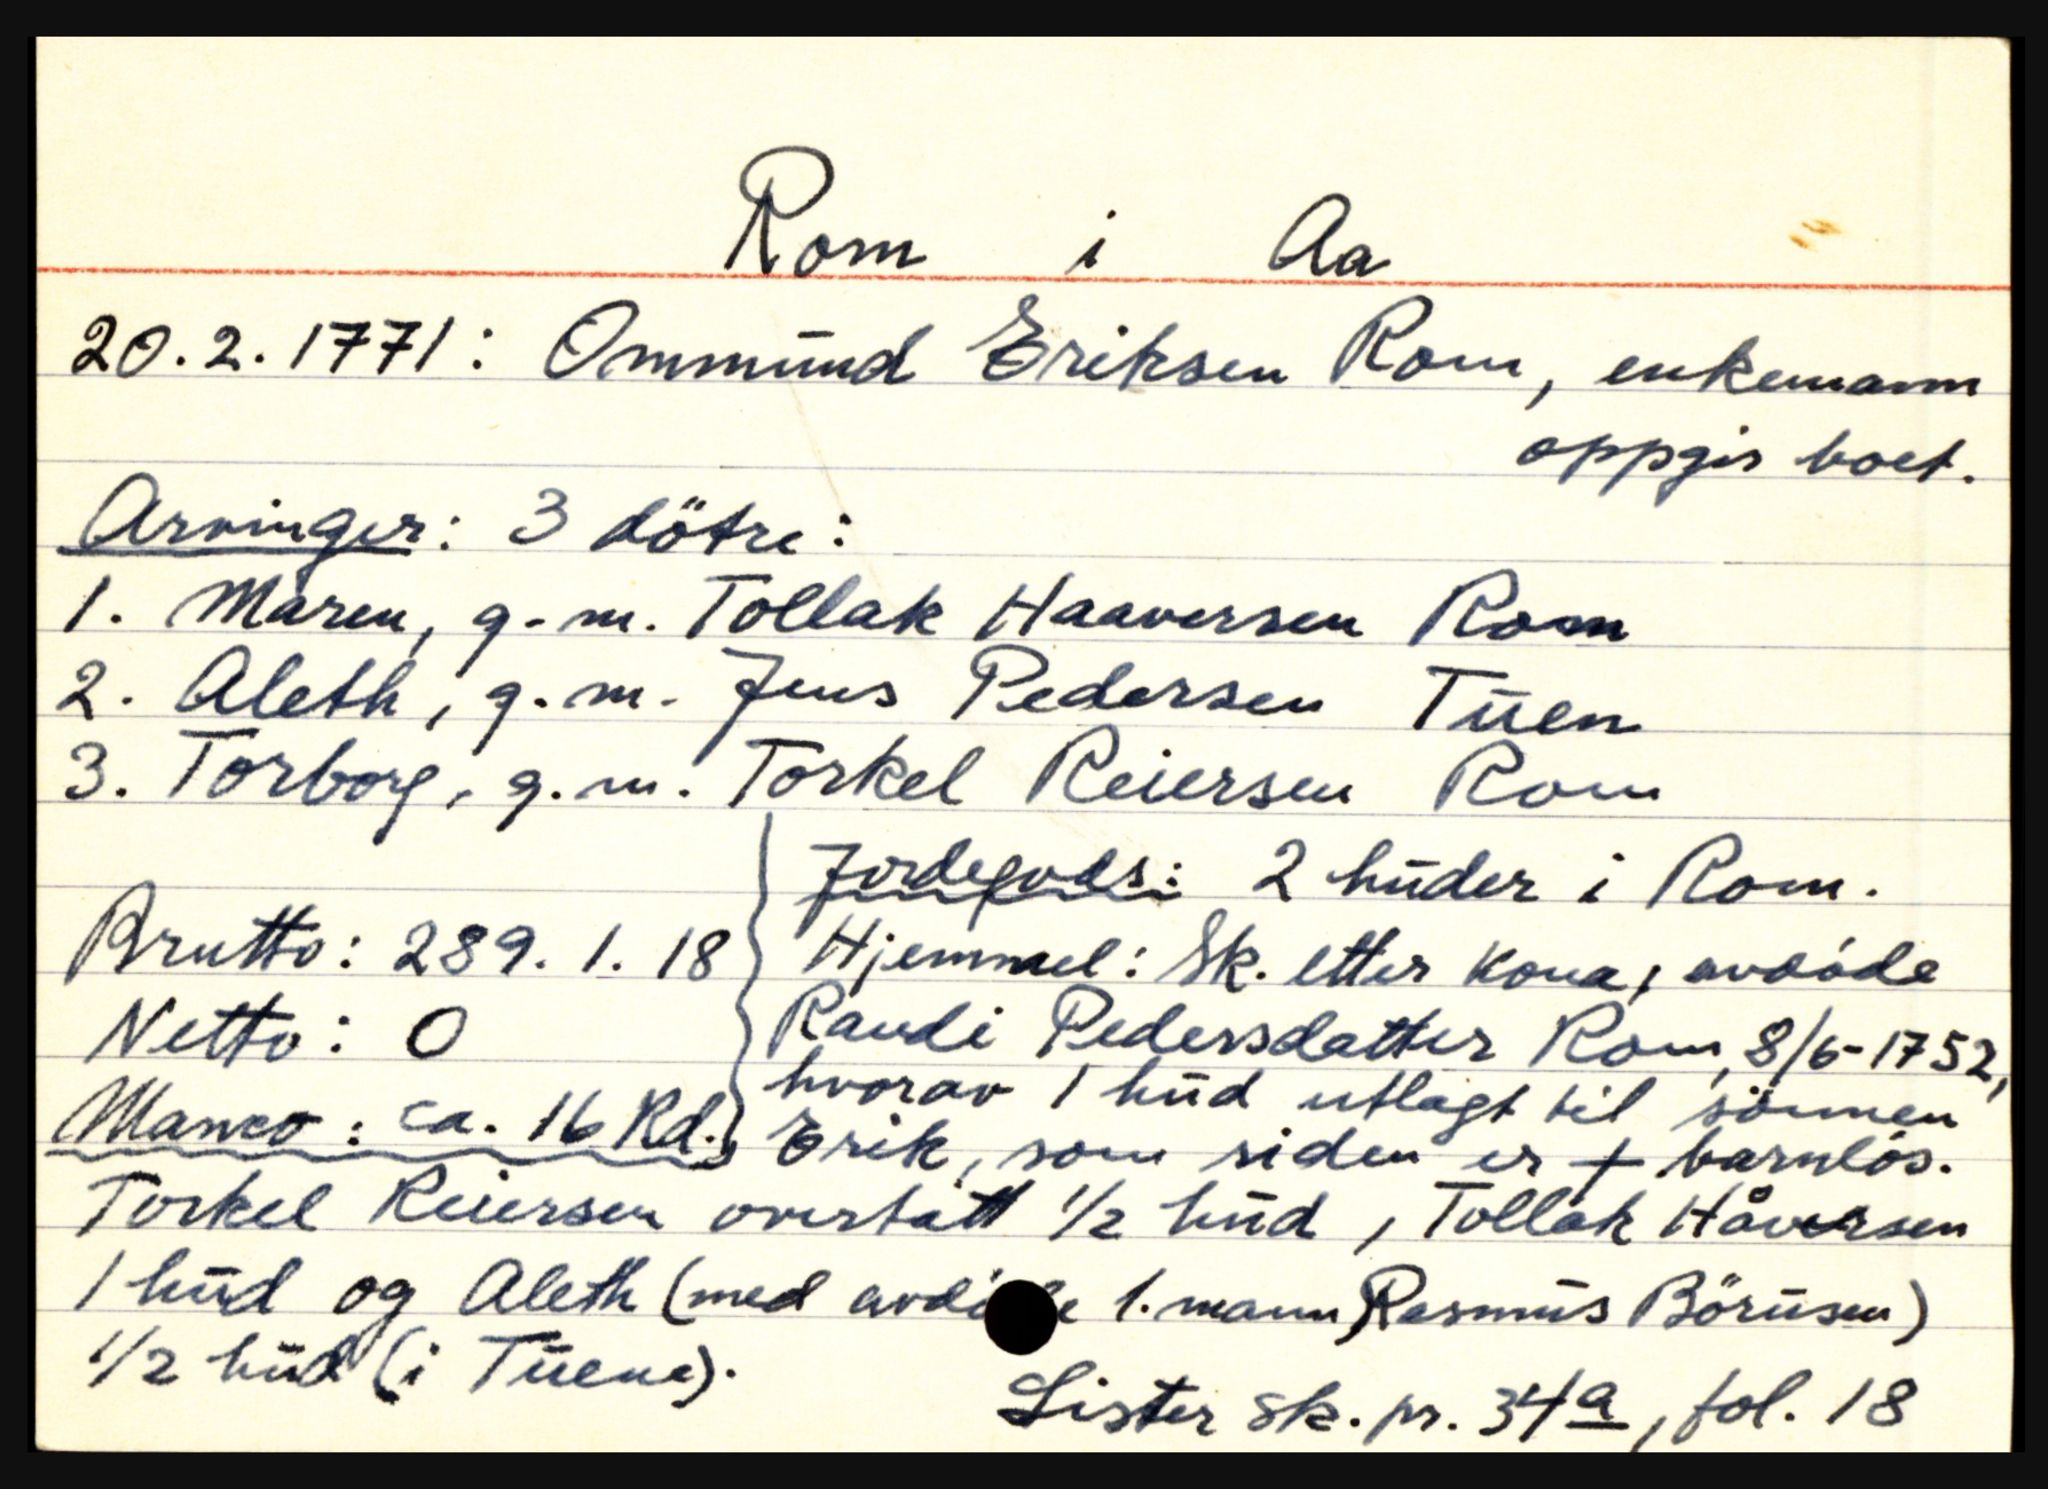 Rom i Aa
20.2.1771: Ommund Eriksen Rom, enkemann
oppgir boet.
Arvinger: 3 dötre:
1. Maren, g.m. Tollak Haaversen Rom
2. Aleth, g.m. Jens Pedersen Tuen
3. Torborg, g.m. Torkel Reiersen Rom
Brutto: 289.1.18
Netto: 0
Manco: ca. 16 Rd.
Jordegods: 2 huder i Rom.
Hjemmel: Sk. etter kona, avdöde
Randi Pedersdatter Rom, 8/6-1752,
hvorav 1 hud utlagt til sönnen
Erik, som siden er + barnlös.
Torkel Reiersen overtatt 1/2 hud, Tollak Håversen
1 hud og Aleth (med avdöde 1. mann, Rasmus Börusen)
1/2 hud (i Tuene).
Lister sk.pr. 34a, fol. 18